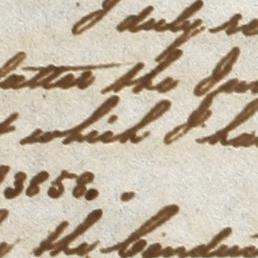 I duly re
latter the Ju
t which I ha
93658.
the Conduc